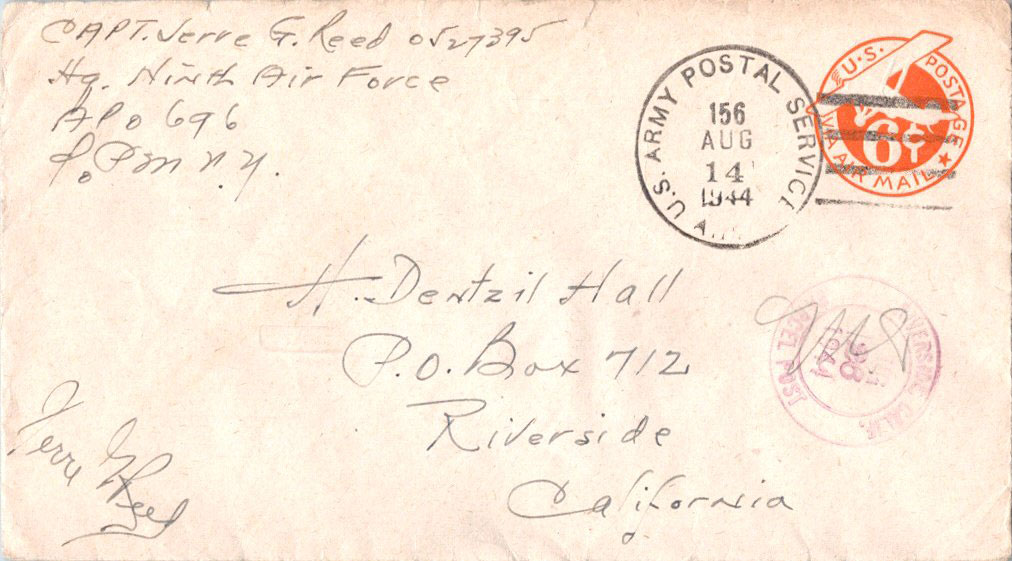 CAPT. Jerre G. Reed 0527395
Hq. Ninth Air Force
APO 696
P.M N.Y.
U.S. ARMY POSTAL SERVICE
156
AUG
14
1944
U.S. POSTAGE
6¢
VIA AIR MAIL
H. Dentzil Hall
P.O. Box 712
Riverside
California
RIVERSIDE CALIF.
28
1944
PARCEL POST
Jerre G Reed